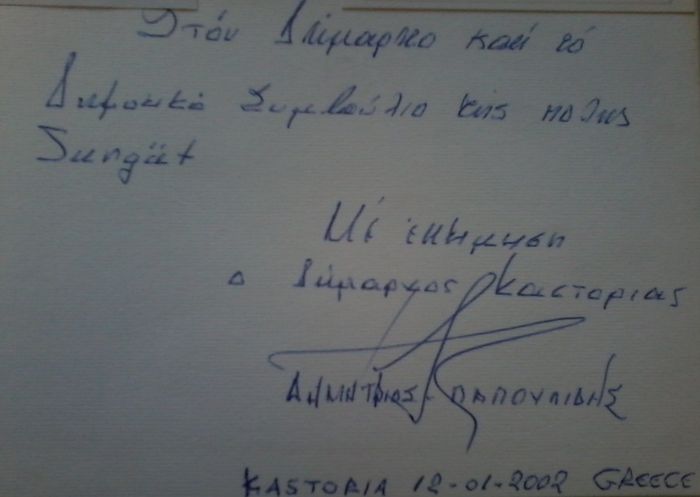 Στόν Δήμαρχο καί τό
Δημοτικό Συμβούλιο της πόλης
Sungüt
Μέ εκτίμηση
ο Δήμαρχος Καστοριάς
ΔΗΜΗΤΡΙΟΣ ΠΑΠΟΥΛΙΔΗΣ
KASTORIA 12-01-2002 GREECE